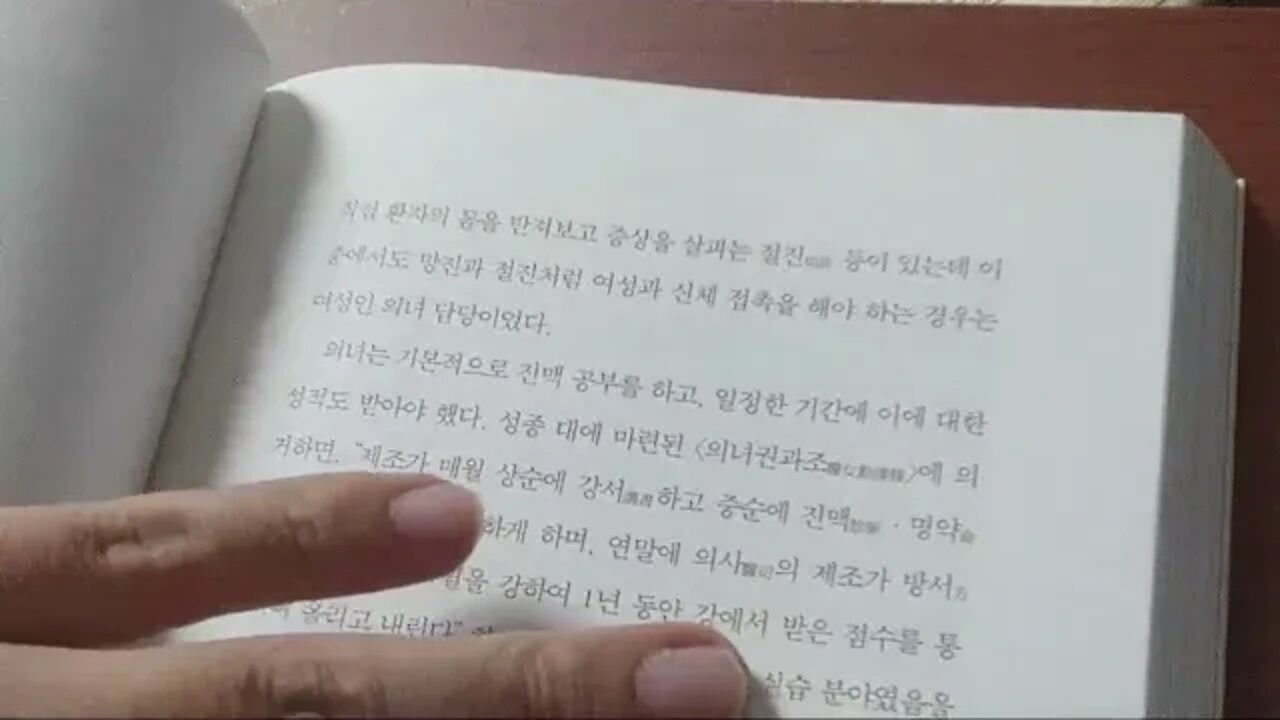 직접 환자의 몸을 만져보고 증상을 살펴는 절진 등이 있는데 이
중에서도 망진과 절진처럼 여성과 신체 접촉을 해야 하는 경우는
여성인 의녀 담당이었다.
의녀는 기본적으로 진맥 공부를 하고, 일정한 기간에 이에 대한
성적도 받아야 했다. 성종 대에 마련된 〈의녀권과조〉에 의
거하면, “제조가 매월 상순에 강서講書하고 중순에 진맥診脈·명약
하게 하며, 연말에 의사醫司의 제조가 방서方
을 강하여 1년 동안 강에서 받은 점수를 통
올리고 내린다”
실습 분야였음을